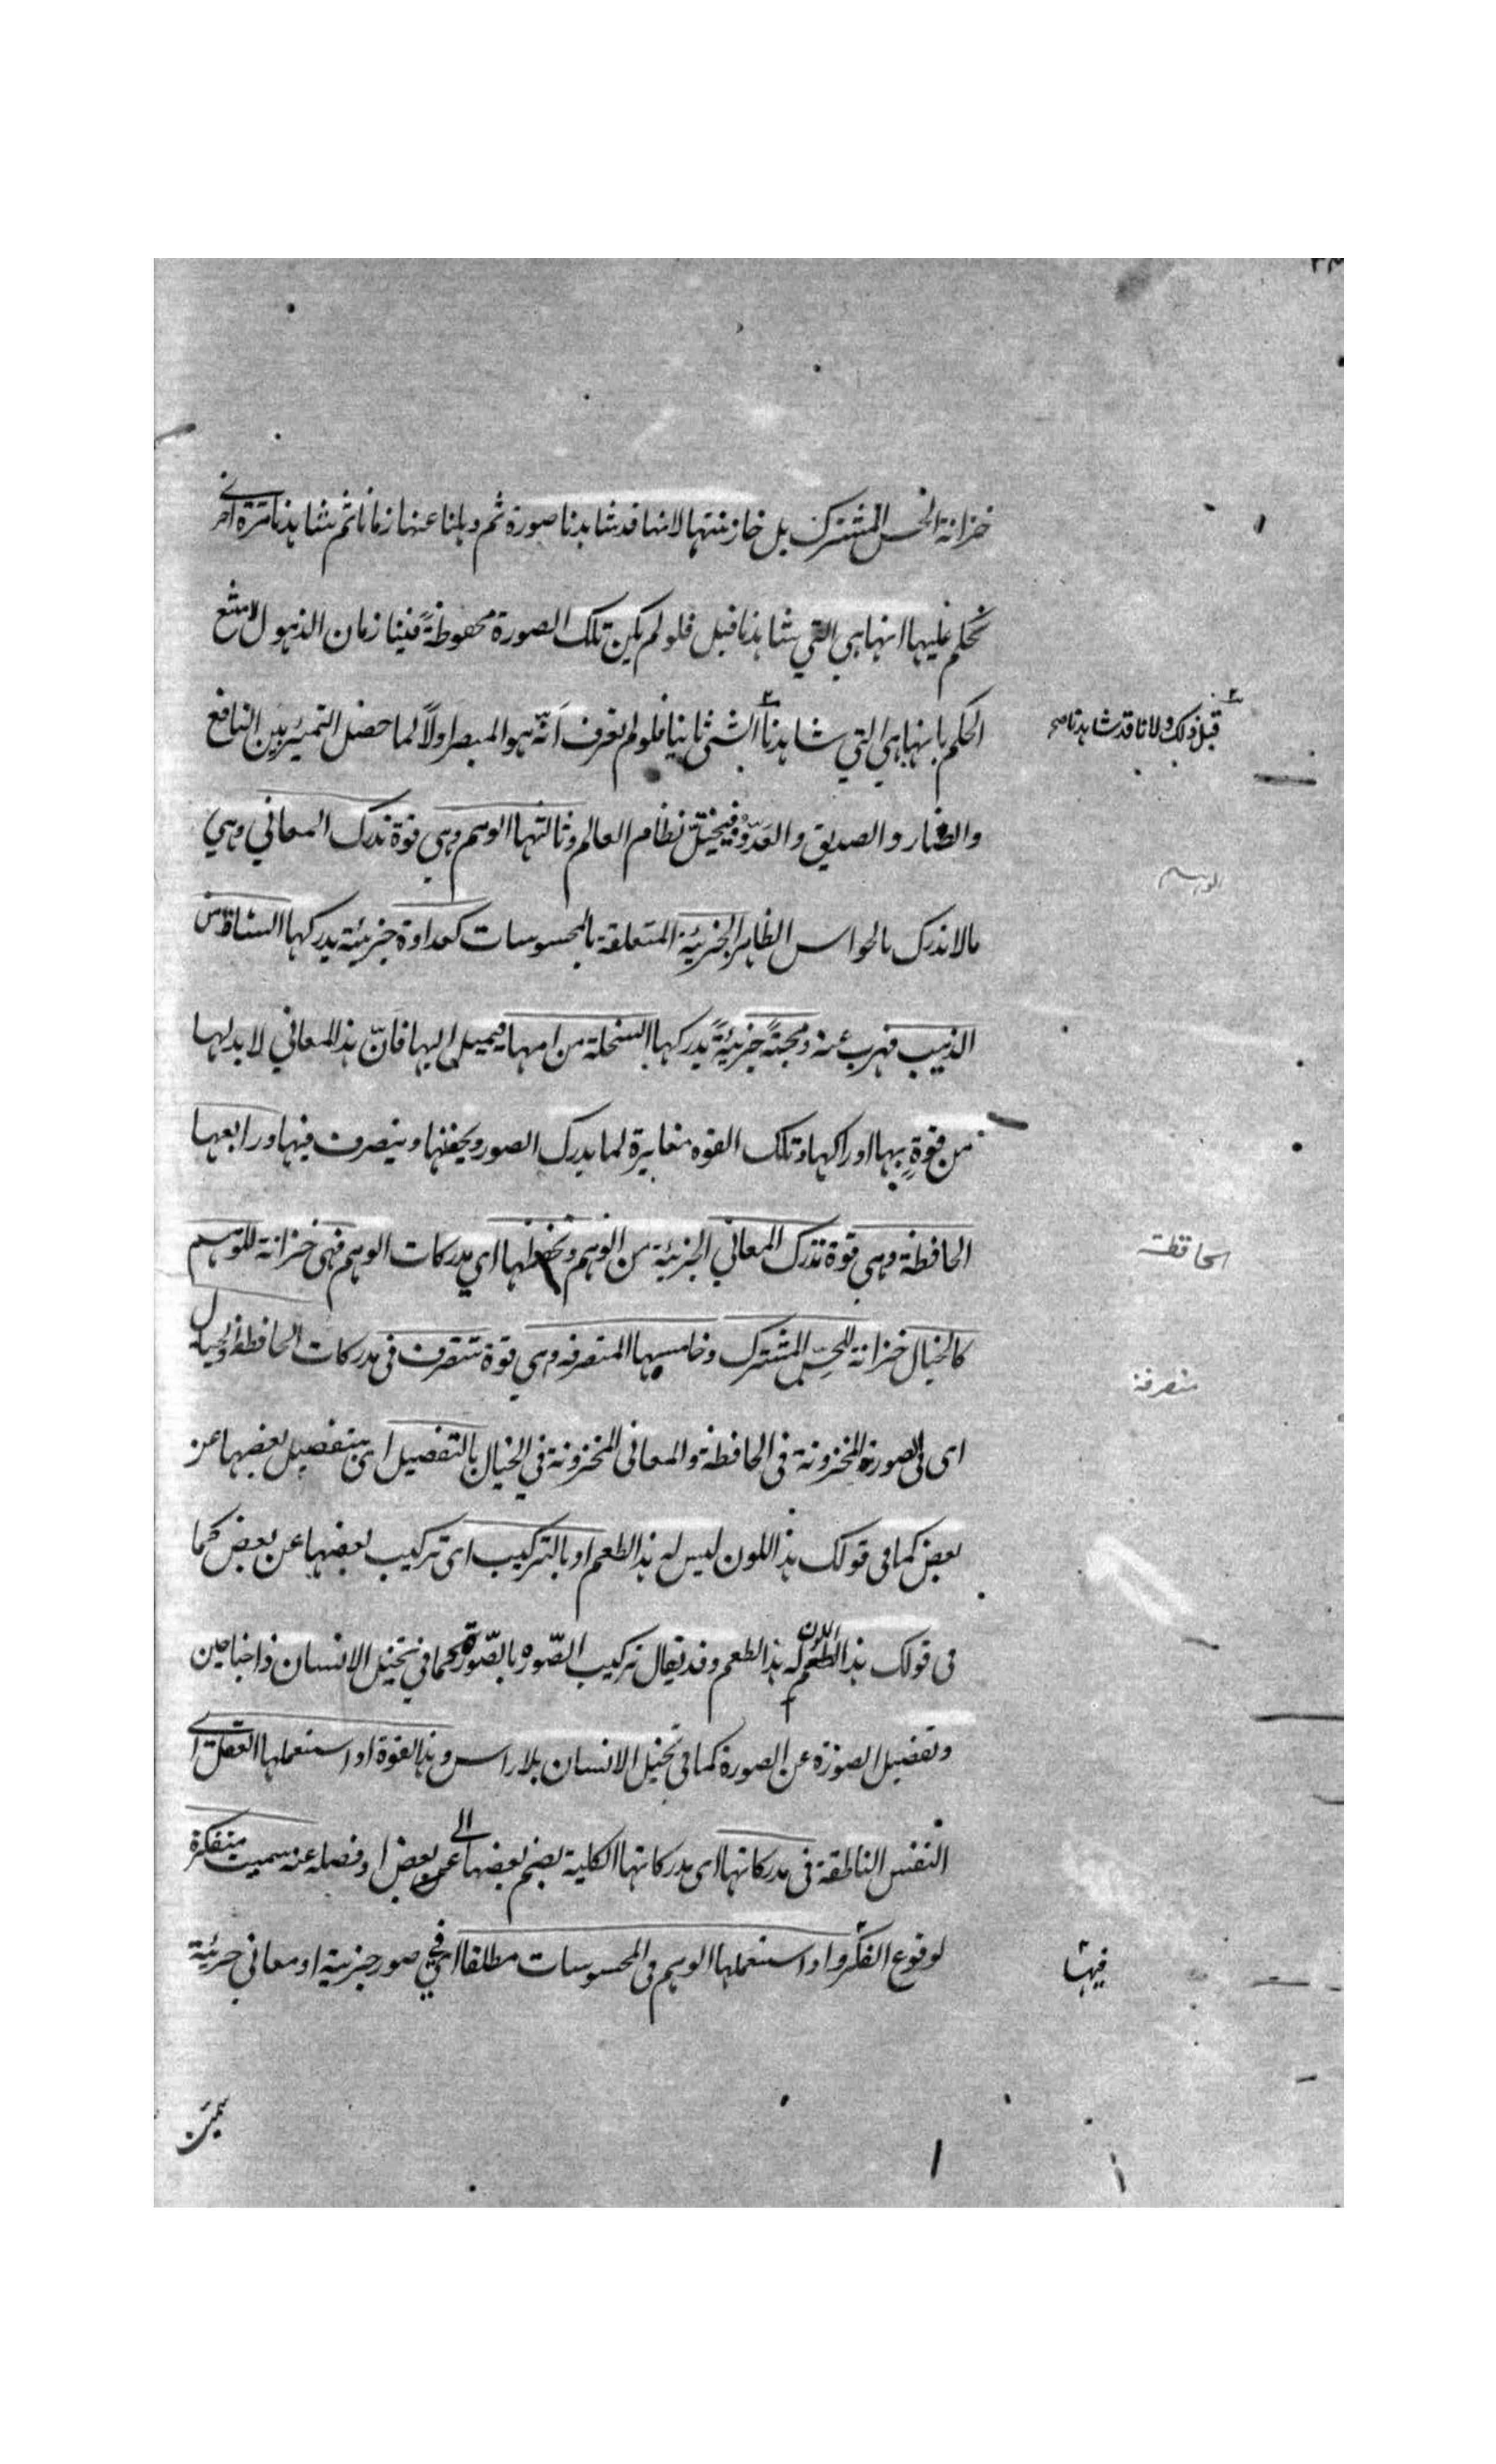 خزانة الحس المشترك بل خازنتها لانها قد شاهدنا صورة ثم ذهلنا عنها زمانا ثم نشاهدنا مرة اخرى
نحكم عليها انها هي التي شاهدنا قبل فلو لم يكن تلك الصورة محفوظةً فينا زمان الذهول لامتنع
الحكم بانها هي التي شاهدنا الشئ ثانيا فلو لم نعرف أنّه هو المبصر اولاً لما حصل التميز بين النافع
قبل ذلك ولانا قد شاهدنا صح
والضار والصديق والعدوّ فيختلّ نظام العالم وثالثها الوهم وهي قوة تدرك المعاني وهي
الوهم
مالا تدرك بالحواس الظاهر الجزئية المتعلقة بالمحسوسات كعداوة جزئية يدركها الشاة من
الذئب فهرب عنه ومحبةً جزئيةً يدركها السخلة من امها فيميل اليها فانّ هذا المعاني لا بد لها
من قوةٍ بها ادراكها وتلك القوه مغايرة لما يدرك الصور ويحفظها ويتصرف فيها ورابعها
الحافظة وهي قوة تدرك المعاني الجزئية من الوهم وتحفظها اي مدركات الوهم فهي خزانة للوهم
الحافظة
كالخيال خزانة للحسّ المشترك وخامسها المتصرفه وهي قوة تتصرف في مدركات الحافظة والخيال
متصرفة
اى فى الصورة المخزونة فى الحافظة والمعانى المخزونة في الخيال بالتفصيل اى بتفصيل بعضها عن
بعض كما فى قولك هذا اللون ليس له هذا الطعم او بالتركيب اى تركيب بعضها عن بعض كما
فى قولك هذا الطعم اللون له هذا الطعم وقد يقال تركيب الصّوره بالصّورة كما في تخيل الانسان ذا جناحين
وتفصيل الصورة عن الصورة كما فى تخيل الانسان بلا راس وهذا القوة اذا استعملها العقل اى
النفس الناطقة فى مدركاتها اى مدركاتها الكلية بضم بعضها الى عن بعض او فصله عنه سميت متفكرة
لوقوع الفكر واذا استعملها الوهم فى المحسوسات مطلقا اى في صور جزئية او معاني جزئية
فيها